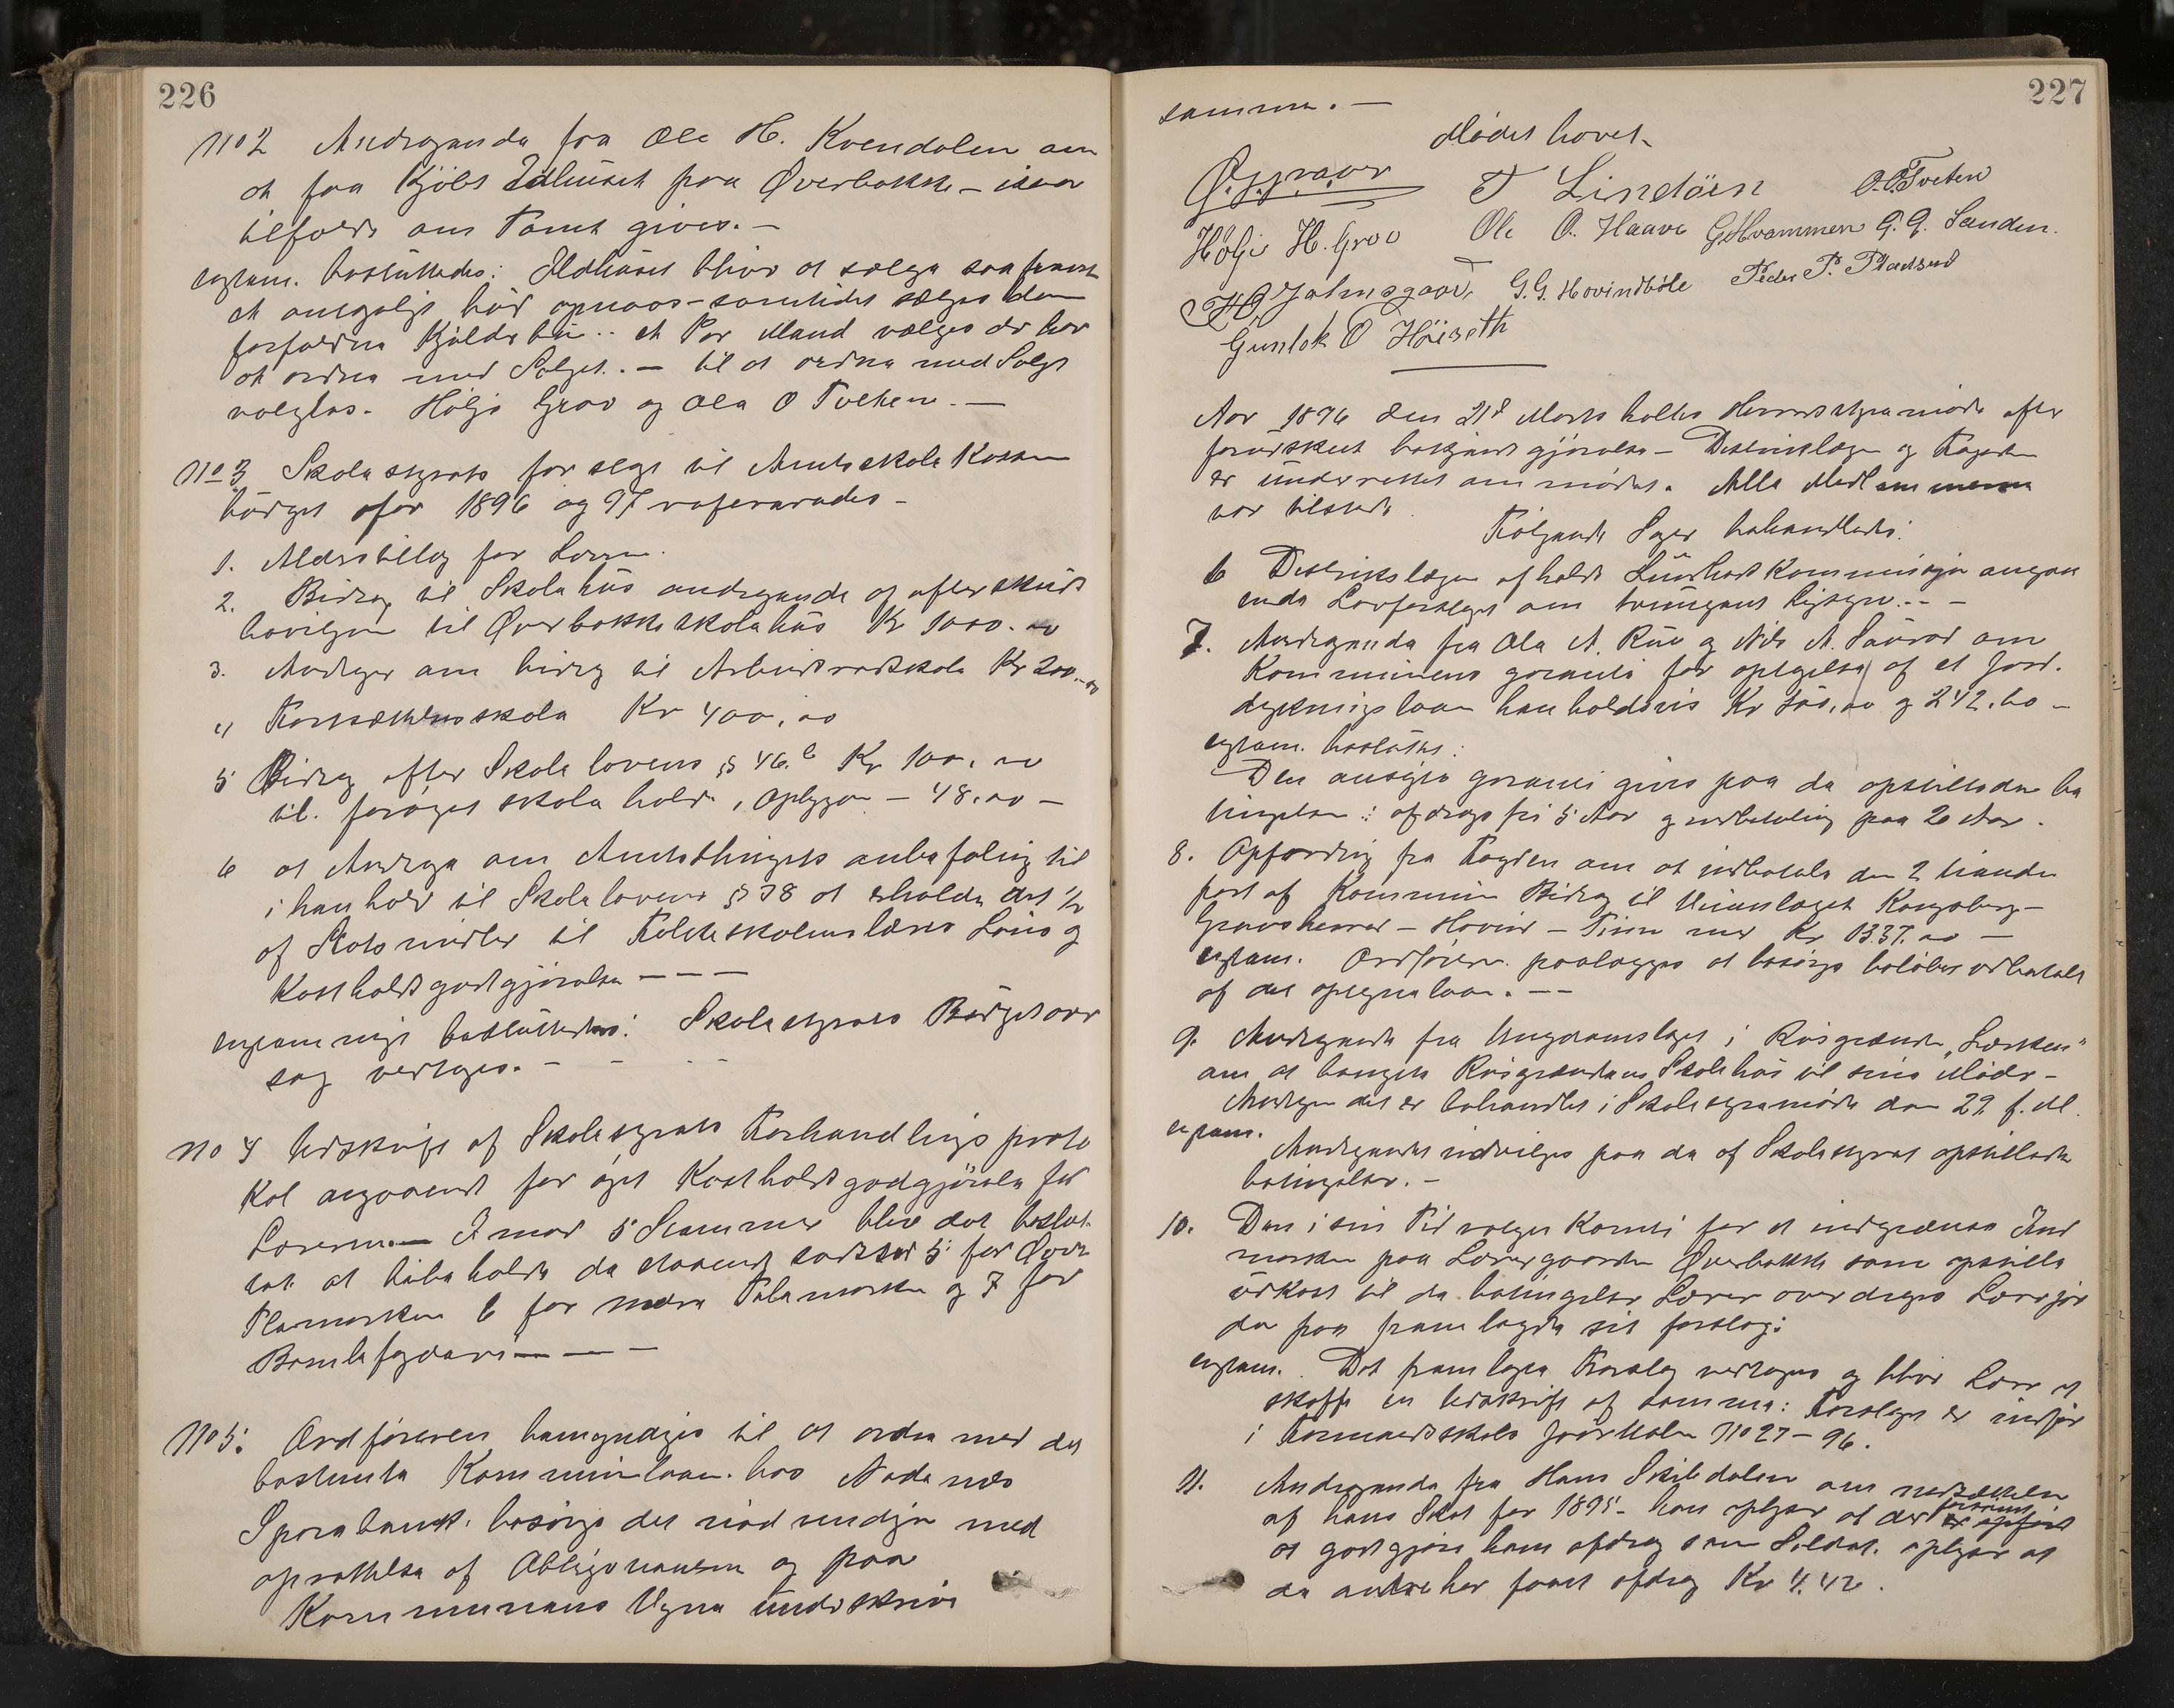 226
No 2 Andragende fra Ole H. Kvendalen om
at faa Kjöbt Ildhuset paa Överbökke – isaar
tilfælde om Tomt gives. –
enstem. besluttedes: Ildhuset blir at sælge saafremt
et antageligt bud opnaaes – samtidet sælges den
forfaldne Kjældebu .. et Par Mand vælges der har
at ordne med Salget. – til at ordne med Salget
valgtes. Hölje Grov og Ole O Tveten. –
No 3 Skolestyrets forslag til Amtsskole Kassen
budget for 1896 og 97 refereredes –
1. Alderstillæg for Lærere.
2. Bidrag til Skolehus andragende og efterskuds
bevilgen til Överbökke skolehus Kr 1000.00
3. Andrager om bidrag til Arbeidsredskole Kr 200.00
4 Fortsættelsesskole Kr 400,00
5 Bidrag efter Skolelovens § 46.b Kr 100,00
til foröget skolehold, oplyges – 48,00 –
6 at Andrage om Amtsthingets anbefaling til
i henhold til Skolelovens § 38 at erholde det 1/2
af Statsmidler til Folkeskolens læreres Löns og
Kostholdsgodtgjörelse – – –
enstemmigt besluttedes: Skolestyrets Budgetover
slag vedtages. – – – –
No 4 Udskrift af Skolestyrets Forhandlingsproto
kol angaaende for öget Kostholdsgodgjörelse for
Lærerne. – Imod 5 Stemmer blev det beslut
tet at bibeholde de staaende satser 5 for Övre
Telemarken 6 for nedre Telemarken og 7 for
Bamble fogderi – – –
No 5. Ordföreren bemyndiges til at ordne med det
bestemte Kommunelaan. hos Nedenes
Sparebank. besörge det nödvendige med
oprettelse af Obligationen og paa
Kommunens Vegne underskrive
227
samme. –
Mödet hævet.
T Lindöen O.O.Tveten
Hölje H. Grov Ole O. Haave G Hvammen G. G. Sanden.
G.G. Hovindböle Peder P. Pladsend
Gunlek O Höiseth
Aar 1896 den 21d Marts holtes Herredsstyremöde efter
forudskeet bekjendtgjörelse – Distriktslægen og Fogden
er underrettet om mödet. Alle Medlemmerne
var tilstede.
Fölgende Sager behandledes:
6 Distriktslægen afholdt Sundhedskommission angaa
ende Lovforslaget om tvungent ligsyn. – –
7. Andragende fra Ole A. Rui og Nils A. Saurød om
Kommunens garanti for optagelse af et Jord.
dyrkningslaan henholdsvis Kr 500,00 og 242.00 –
enstem. besluttes:
Den ansögte garanti gives paa de opstillede be
tingelser: afdrags fri 5 Aar og nedbetaling paa 20 Aar.
8. Opfordring fra Fogden om at indbetale den 2 tiende
part af Kommune Bidrag til Veianlæget Kongsberg –
Gransherred – Hovin – Tinn med Kr 1337.00 –
enstem. Ordföreren paalægges at besörge belöbet udbetalt
af det optagne laan. – –
9. Andragende fra Ungdomslaget i Rusgrænde "Lærken"
om at benytte Rusgrændens Skolehus til sine Möder –
Andragendet er behandlet i Skolestyremöde den 29 f. M.
enstem.
Andragendet indvilges paa de af Skolestyret opstillede
betingelser. –
10. Den i sin Tid valgte Komite for at indgrænse Ind
marken paa Lærergaarden Överbökke samt opstille
udkast til de betingelser Lærer overdrages Lærerjor
den paa fremlagde sit forslag:
enstem. Det fremlagte Forslag vedtages og blir Lærer at
skaffe en Udskrift af samme: Forslaget er indfør
i Formandsskabs Journalen No 27 – 96.
11. Andragende fra Hans Skibedalen om nedsættelse
af hans Skat for 1895 – han oplyser at der
at godtgjöre ham afdrag som Soldat. oplyser at
de andre har faaet afdrag Kr 4.42.